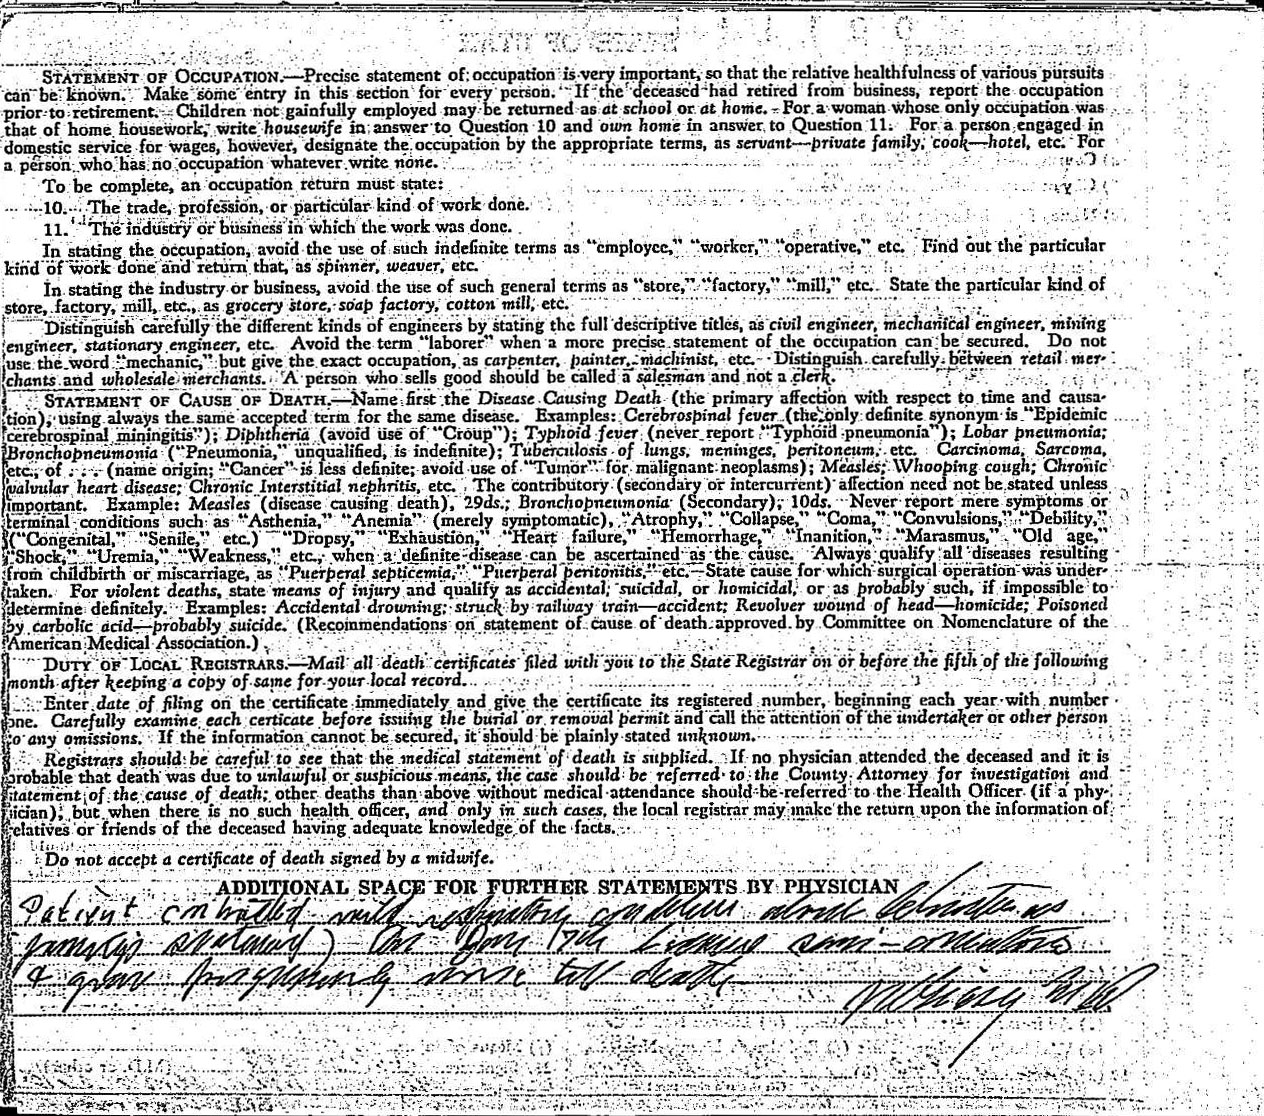 STATEMENT OF OCCUPATION.—Precise statement of occupation is very important, so that the relative healthfulness of various pursuits
can be known. Make some entry in this section for every person. If the deceased had retired from business, report the occupation
prior to retirement. Children not gainfully employed may be returned as at school or at home. For a woman whose only occupation was
that of home housework, write housewife in answer to Question 10 and own home in answer to Question 11. For a person engaged in
domestic service for wages, however, designate the occupation by the appropriate terms, as servant—private family, cook—hotel, etc. For
a person who has no occupation whatever write none.
To be complete, an occupation return must state:
10. The trade, profession, or particular kind of work done.
11. The industry or business in which the work was done.
In stating the occupation, avoid the use of such indefinite terms as "employee," "worker," "operative," etc. Find out the particular
kind of work done and return that, as spinner, weaver, etc.
In stating the industry or business, avoid the use of such general terms as "store," "factory," "mill," etc. State the particular kind of
store, factory, mill, etc., as grocery store, soap factory, cotton mill, etc.
Distinguish carefully the different kinds of engineers by stating the full descriptive titles, as civil engineer, mechanical engineer, mining
engineer, stationary engineer, etc. Avoid the term "laborer" when a more precise statement of the occupation can be secured. Do not
use the word "mechanic," but give the exact occupation, as carpenter, painter, machinist, etc. Distinguish carefully between retail mer-
chants and wholesale merchants. A person who sells good should be called a salesman and not a clerk.
STATEMENT OF CAUSE OF DEATH.—Name first the Disease Causing Death (the primary affection with respect to time and causa-
tion), using always the same accepted term for the same disease. Examples: Cerebrospinal fever (the only definite synonym is "Epidemic
cerebrospinal miningitis"); Diphtheria (avoid use of "Croup"); Typhoid fever (never report "Typhoid pneumonia"); Lobar pneumonia;
Bronchopneumonia ("Pneumonia," unqualified, is indefinite); Tuberculosis of lungs, meninges, peritoneum, etc. Carcinoma, Sarcoma,
etc., of . . . (name origin; "Cancer" is less definite; avoid use of "Tumor" for malignant neoplasms); Measles; Whooping cough; Chronic
valvular heart disease; Chronic Interstitial nephritis, etc. The contributory (secondary or intercurrent) affection need not be stated unless
important. Example: Measles (disease causing death), 29ds.; Bronchopneumonia (Secondary); 10ds. Never report mere symptoms or
terminal conditions such as "Asthenia," "Anemia" (merely symptomatic), "Atrophy," "Collapse," "Coma," "Convulsions," "Debility,"
("Congenital," "Senile," etc.) "Dropsy," "Exhaustion," "Heart failure," "Hemorrhage," "Inanition," "Marasmus," "Old age,"
"Shock," "Uremia," "Weakness," etc., when a definite disease can be ascertained as the cause. Always qualify all diseases resulting
from childbirth or miscarriage, as "Puerperal septicemia," "Puerperal peritonitis," etc.—State cause for which surgical operation was under-
taken. For violent deaths, state means of injury and qualify as accidental, suicidal, or homicidal, or as probably such, if impossible to
determine definitely. Examples: Accidental drowning; struck by railway train—accident; Revolver wound of head—homicide; Poisoned
by carbolic acid—probably suicide. (Recommendations on statement of cause of death approved by Committee on Nomenclature of the
American Medical Association.)
DUTY OF LOCAL REGISTRARS.—Mail all death certificates filed with you to the State Registrar on or before the fifth of the following
month after keeping a copy of same for your local record.
Enter date of filing on the certificate immediately and give the certificate its registered number, beginning each year with number
one. Carefully examine each certicate before issuing the burial or removal permit and call the attention of the undertaker or other person
to any omissions. If the information cannot be secured, it should be plainly stated unknown.
Registrars should be careful to see that the medical statement of death is supplied. If no physician attended the deceased and it is
probable that death was due to unlawful or suspicious means, the case should be referred to the County Attorney for investigation and
statement of the cause of death; other deaths than above without medical attendance should be referred to the Health Officer (if a phy-
sician), but when there is no such health officer, and only in such cases, the local registrar may make the return upon the information of
relatives or friends of the deceased having adequate knowledge of the facts.
Do not accept a certificate of death signed by a midwife.
ADDITIONAL SPACE FOR FURTHER STATEMENTS BY PHYSICIAN
Patient contracted mild respiratory condition about Christmas
family's statement) On Jan 17th became semi-comatose
& grew progressively worse till death